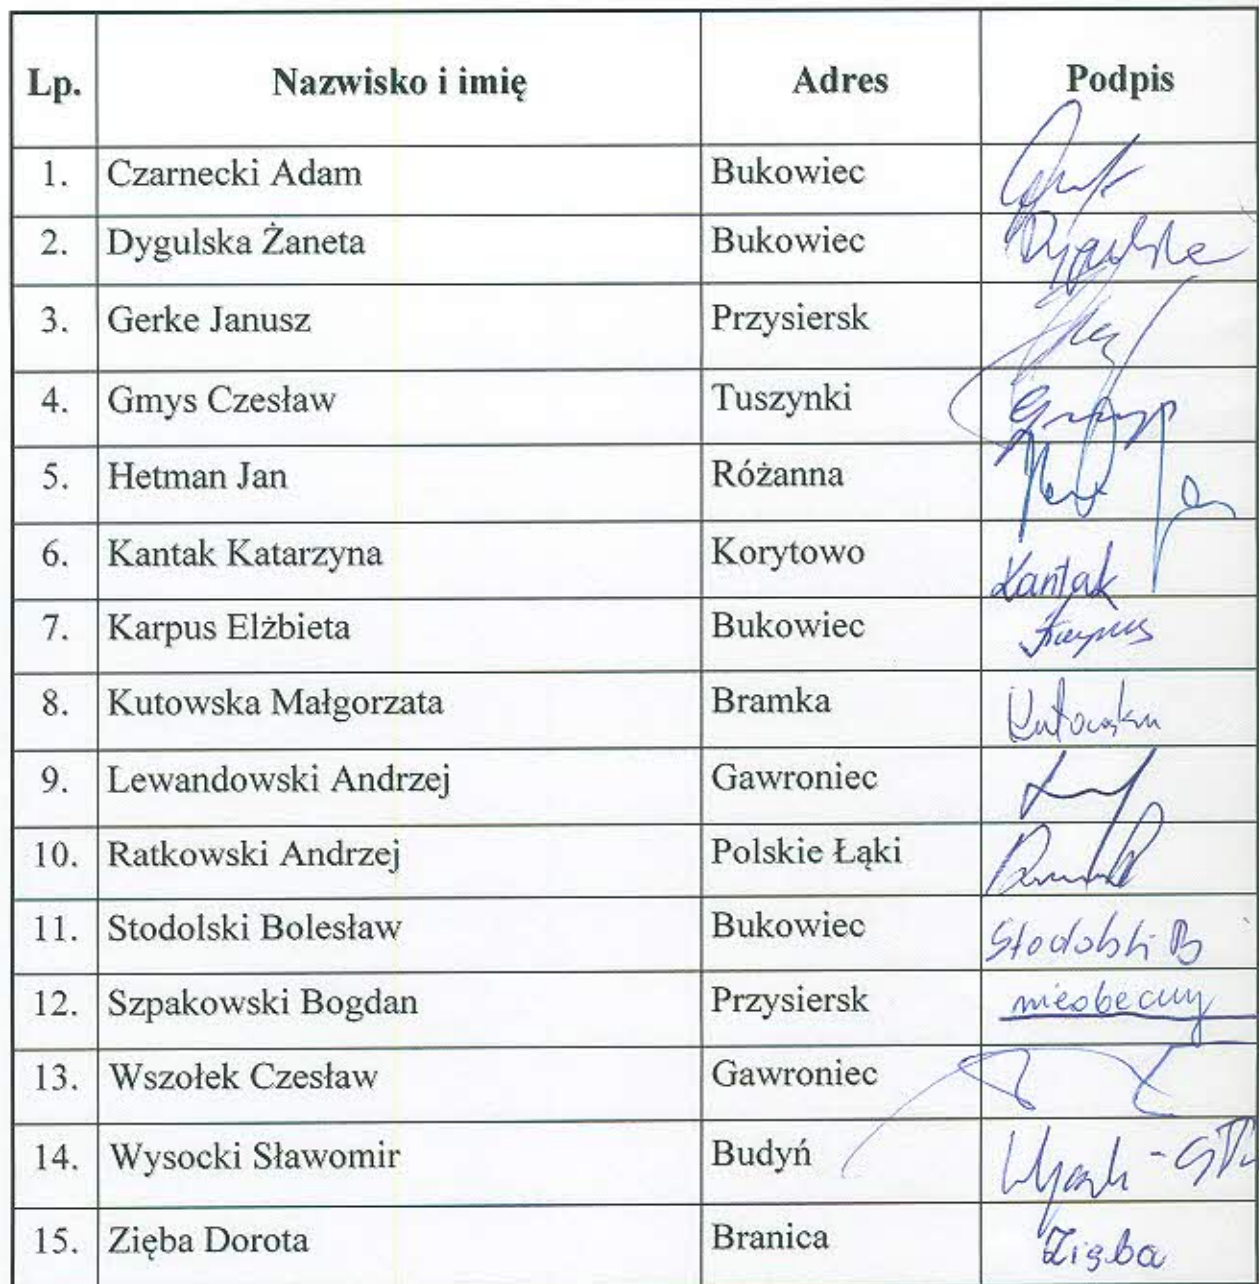 Lp. Nazwisko i imię Adres Podpis
1. Czarnecki Adam Bukowiec
2. Dygulska Żaneta Bukowiec Dygulska
3. Gerke Janusz Przysiersk
4. Gmys Czesław Tuszynki Gmys
5. Hetman Jan Różanna
6. Kantak Katarzyna Korytowo Kantak
7. Karpus Elżbieta Bukowiec Karpus
8. Kutowska Małgorzata Bramka Kutowska
9. Lewandowski Andrzej Gawroniec
10. Ratkowski Andrzej Polskie Łąki
11. Stodolski Bolesław Bukowiec Stodolski B
12. Szpakowski Bogdan Przysiersk nieobecny
13. Wszołek Czesław Gawroniec
14. Wysocki Sławomir Budyń
15. Zięba Dorota Branica Zięba